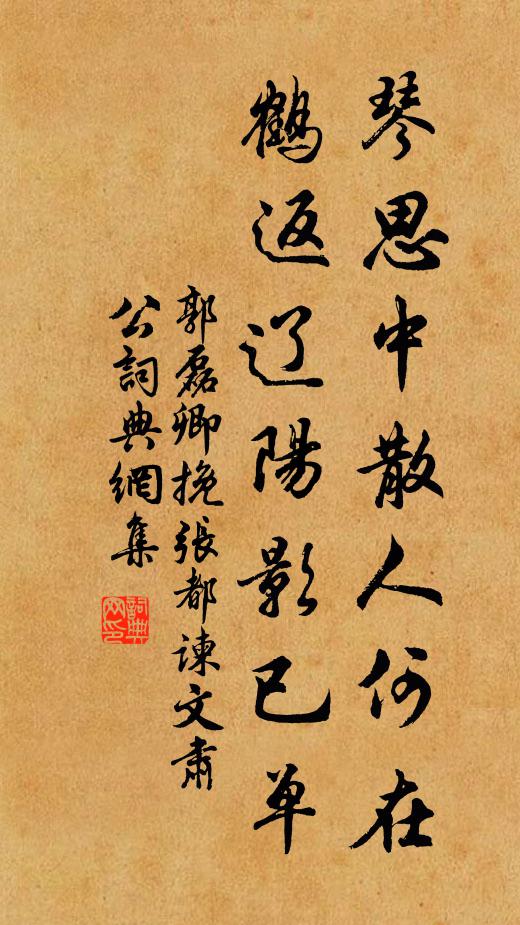 琴思中散人何在
鶴返辽陽影已单
郭磊卿挽張都諫文肅
公詞典網集
詞典网印